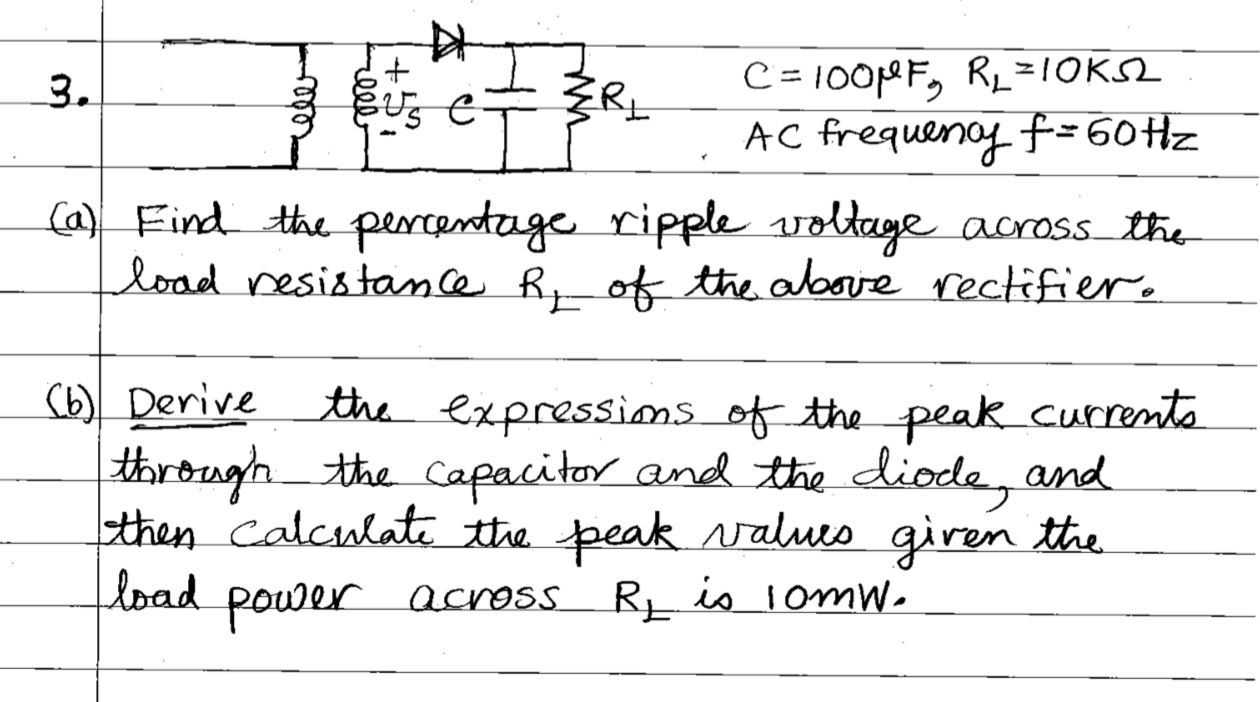 3.
+
υs
-
C
RL
C = 100μF, RL = 10KΩ
AC frequency f = 60Hz
(a) Find the percentage ripple voltage across the
load resistance RL of the above rectifier.
(b) Derive the expressions of the peak currents
through the capacitor and the diode, and
then calculate the peak values given the
load power across RL is 10mW.